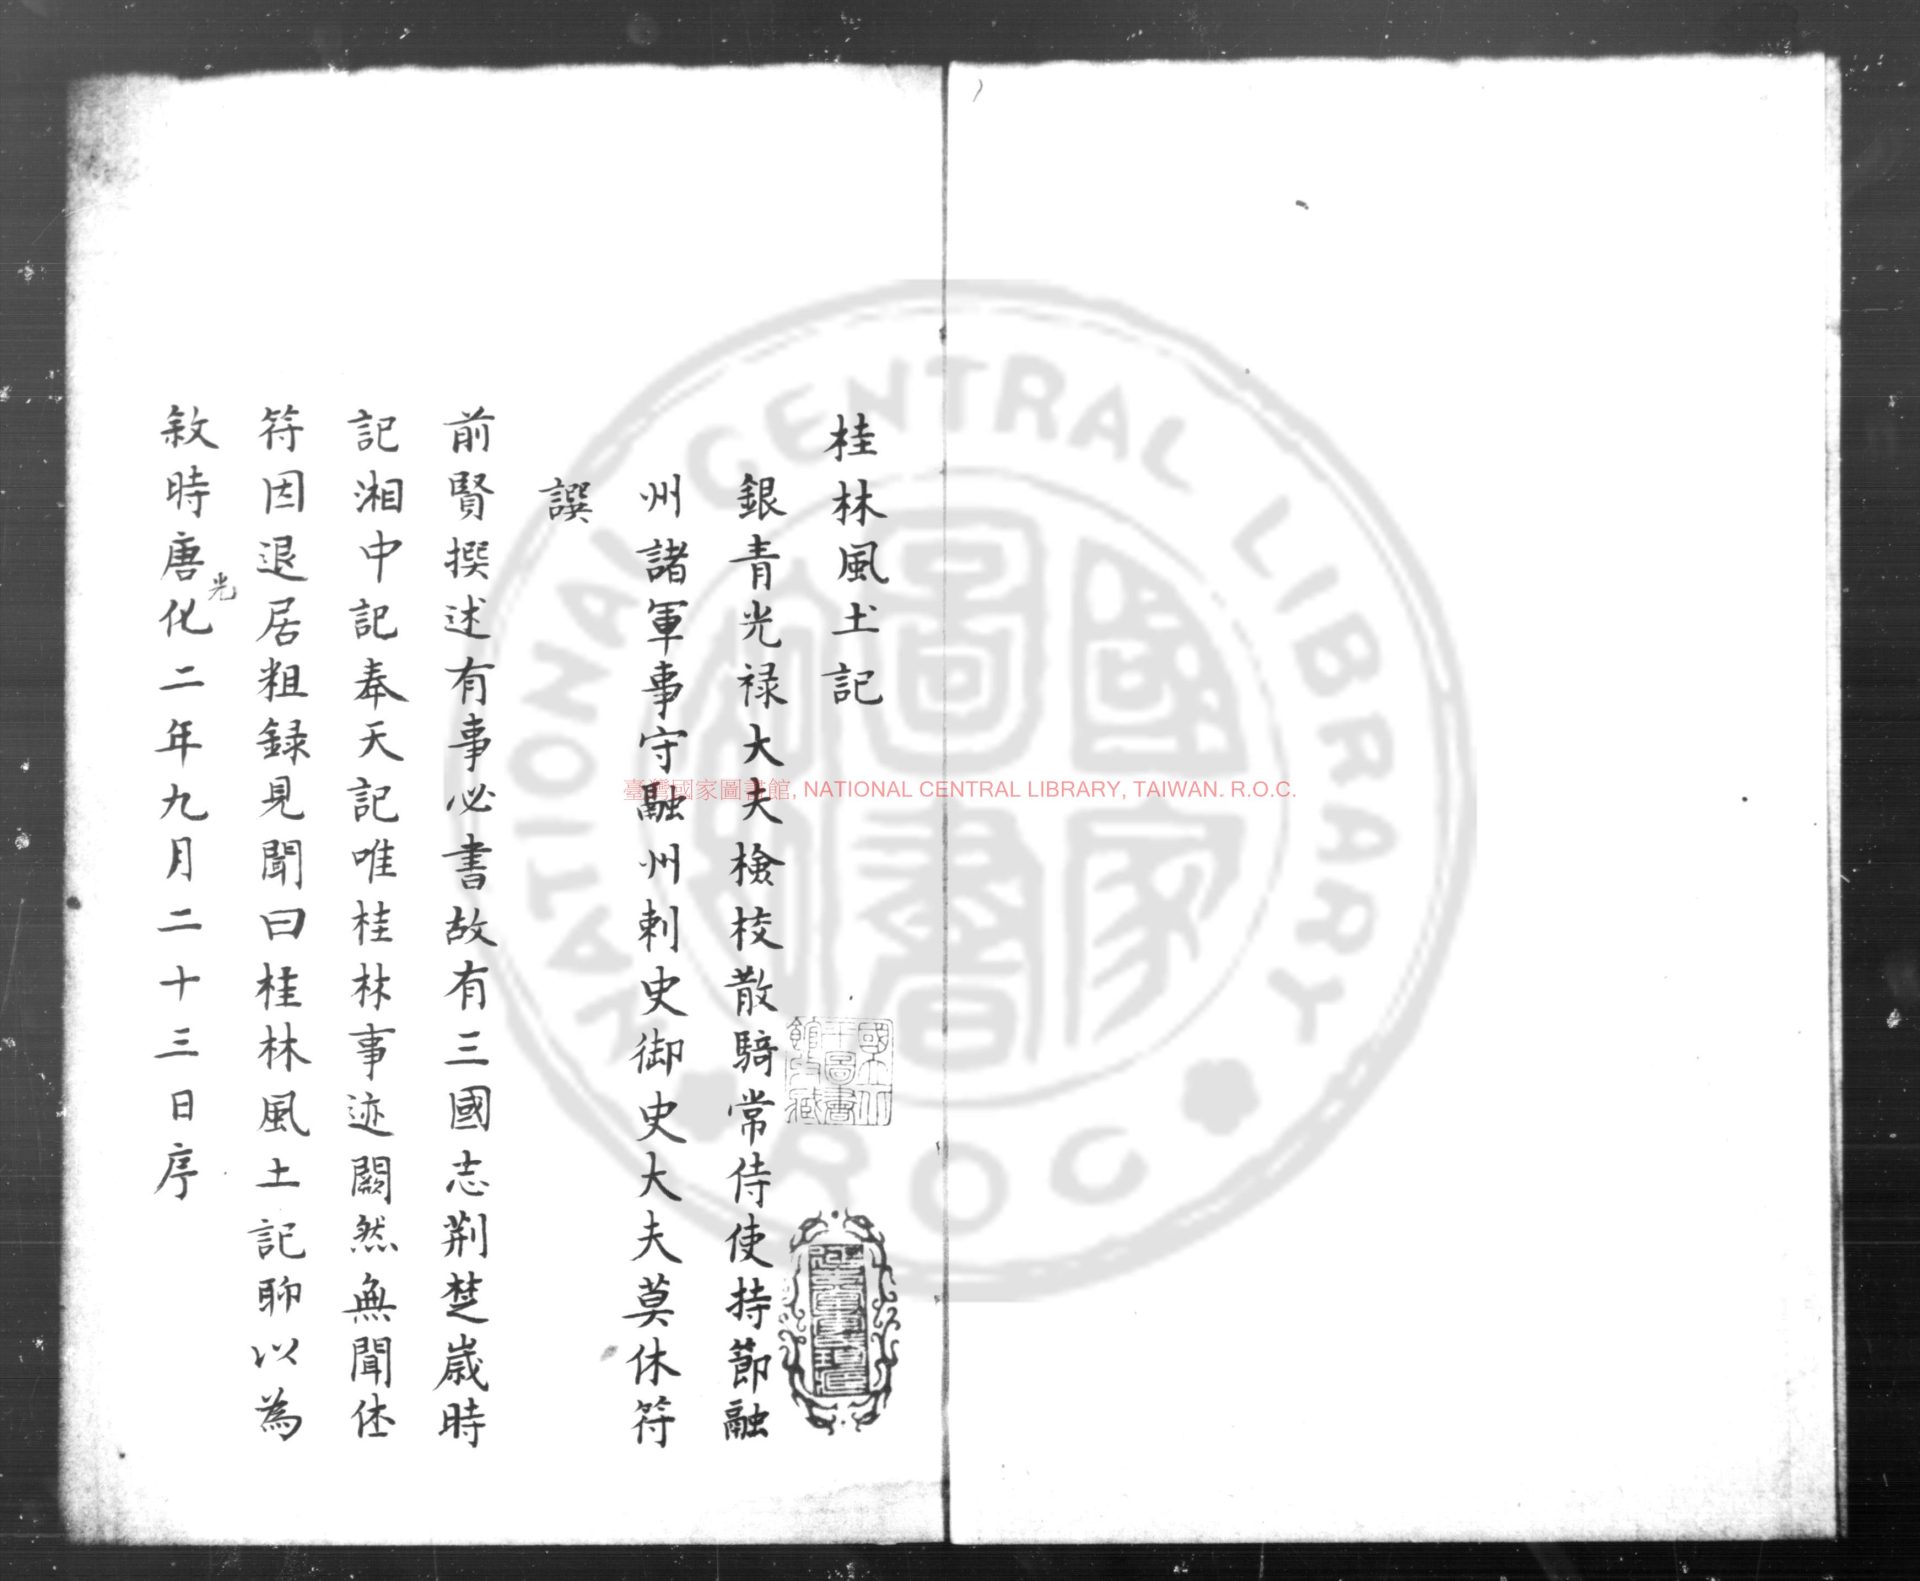 桂林風土記
銀青光禄大夫檢校散騎常侍使持節融
州諸軍事守融州刺史御史大夫莫休符
譔
前賢撰述有事必書故有三國志荆楚歲時
記湘中記奉天記唯桂林事迹闕然無聞休
符因退居粗録見聞曰桂林風土記聊以為
敘時唐光化二年九月二十三日序
國立中央圖書館收藏
臺灣國家圖書館, NATIONAL CENTRAL LIBRARY, TAIWAN. R.O.C.
NATIONAL CENTRAL LIBRARY
國家圖書
R O C